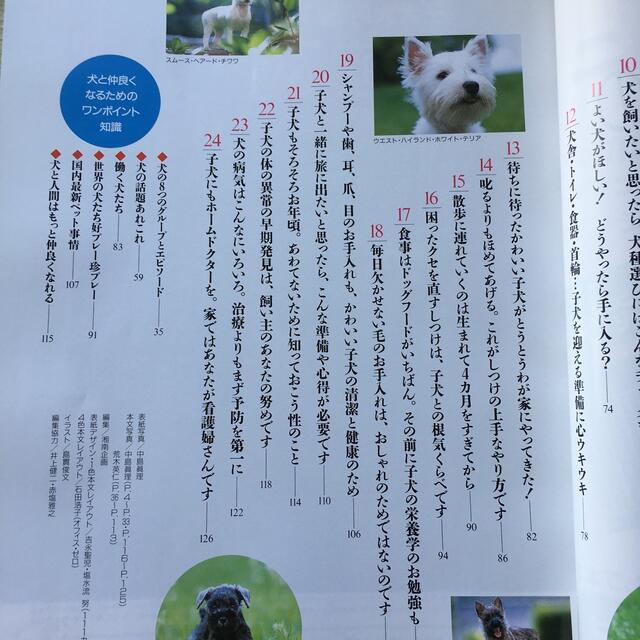 10 犬を飼いたいと思ったら 犬種選びは
11 よい犬がほしい! どうやったら手に入る?——74
12 犬舎・トイレ・食器・首輪…子犬を迎える準備に心ウキウキ——78
13 待ちに待ったかわいい子犬がとうとうわが家にやってきた!——82
14 叱るよりもほめてあげる。これがしつけの上手なやり方です——86
15 散歩に連れていくのは生まれて4カ月をすぎてから——90
16 困ったクセを直すしつけは、子犬との根気くらべです——94
17 食事はドッグフードがいちばん。その前に子犬の栄養学のお勉強も
18 毎日欠かせない毛のお手入れは、おしゃれのためではないのです
19 シャンプーや歯、耳、爪、目のお手入れも、かわいい子犬の清潔と健康のため——106
20 子犬と一緒に旅に出たいと思ったら、こんな準備や心得が必要です——110
21 子犬もそろそろお年頃。あわてないために知っておこう性のこと——114
22 子犬の体の異常の早期発見は、飼い主のあなたの努めです——118
23 犬の病気はこんなにいろいろ。治療よりもまず予防を第一に——122
24 子犬にもホームドクターを。家ではあなたが看護婦さんです——126
スムース・ヘアード・チワワ
ウエスト・ハイランド・ホワイト・テリア
犬と仲良く
なるための
ワンポイント
知識
◆犬の8つのグループとエピソード——35
◆犬の話題あれこれ——59
◆働く犬たち——83
◆世界の犬たち好プレー・珍プレー——91
◆国内最新ペット事情——107
◆犬と人間はもっと仲良くなれる——115
表紙写真/中島眞理
本文写真/中島眞理(P.4〜P.33・P.116〜P.125)
荒木英仁(P.36〜P.113)
編集/湘南企画
表紙デザイン・1色本文レイアウト/吉永聖児・塩水流 努
4色本文レイアウト/石田浩子(オフィス・ゼロ)
イラスト/島貫俊文
編集協力/井上健二・赤塩雅之